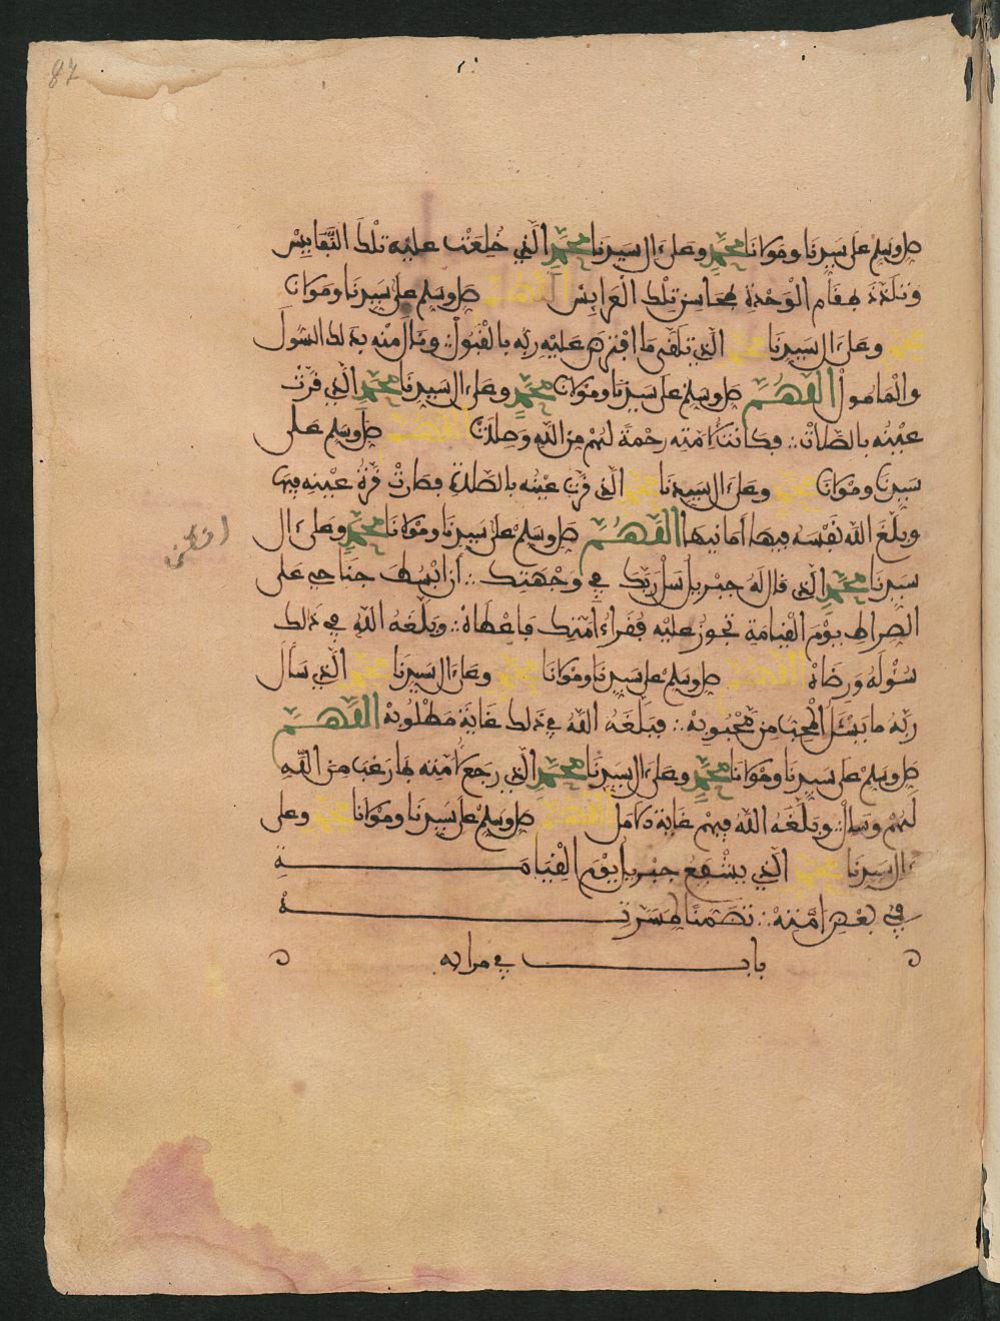 87
صل وسلم على سيدنا ومولانا محمد وعلى ءال سيدنا محمد الذي خلعت عليه تلك النفايس
وتلذذ بمقام الوحدة بمحاسن تلك العرايس اللهم صل وسلم على سيدنا ومولانا
محمد وعلى ءال سيدنا محمد الذي تلقى ما افترض عليه ربه بالقبول ونال منه بذلك السول
والمامول اللهم صل وسلم على سيدنا ومولانا محمد وعلى ءال سيدنا محمد الذي قرت
عينه بالصلات فكانت لامته رحمة لهم من الله وصلات اللهم صل وسلم على
سيدنا ومولانا محمد وعلى ءال سيدنا محمد الذي قرت عينه بالصلاة فصارت قرة عينه فيها
وبلغ الله نفسه فيها امانيها اللهم صل وسلم على سيدنا ومولانا محمد وعلى ءال
سيدنا محمد الذي قال له جبريل سل ربك في وجهتك ان ابسط جناحي على
الصراط يوم القيامة تجوز عليه فقراء امتك فاعطاه وبلغه الله في ذلك
سؤله ورضاه اللهم صل وسلم على سيدنا ومولانا محمد وعلى ءال سيدنا محمد الذي سال
ربه ما يسئل المحب من محبوبه فبلغه الله في ذلك غاية مطلوبه اللهم
صل وسلم على سيدنا ومولانا محمد وعلى ءال سيدنا محمد الذي رجع لامته بما رغب من الله
لهم وسال وبلغه الله فيهم غاية كامل اللهم صل وسلم على سيدنا ومولانا محمد وعلى
ءال سيدنا محمد الذي يشفع جبريل يوم القيامة
في بعض امته تضمنا لمسرته
باب في مراىه